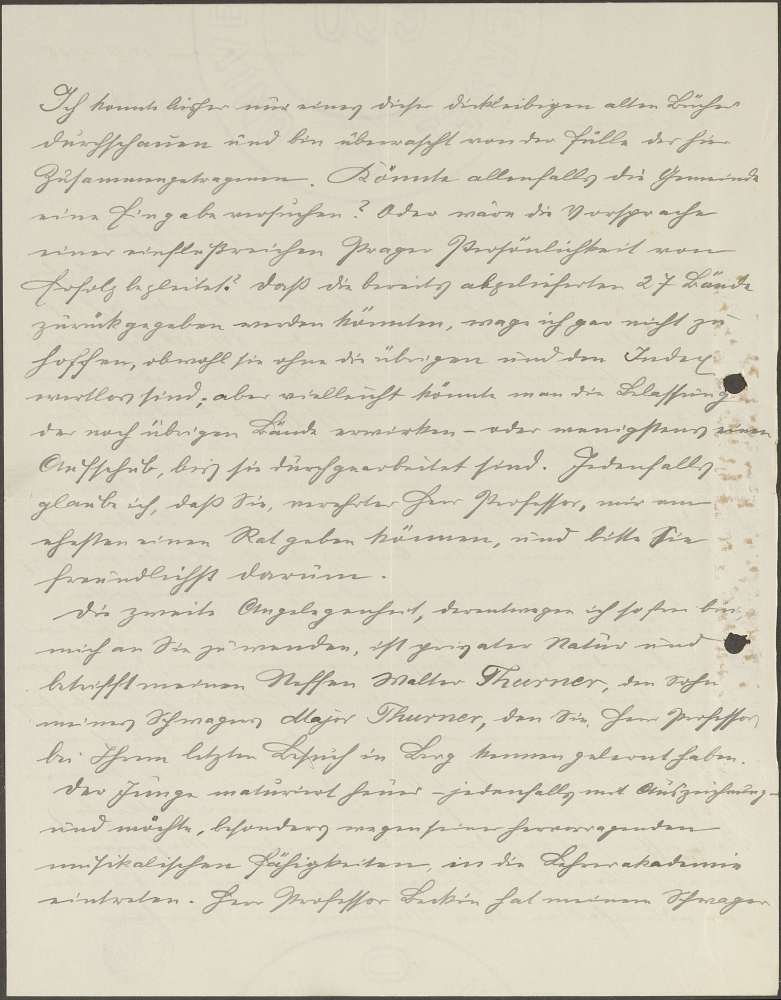 Ich konnte bisher nur eines dieser dickleibigen alten Bücher
durchschauen und bin überrascht von der Fülle des hier
Zusammengetragenen. Könnte allenfalls die Gemeinde
eine Eingabe versuchen? Oder wäre die Vorsprache
einer einflußreichen Prager Persönlichkeit von
Erfolg begleitet? Daß die bereits abgelieferten 27 Bände
zurückgegeben werden könnten, wage ich gar nicht zu
hoffen, obwohl sie ohne die übrigen und den Index
wertlos sind; aber vielleicht könnte man die Belassung
der noch übrigen Bände erwirken – oder wenigstens einen
Aufschub, bis sie durchgearbeitet sind. Jedenfalls
glaube ich, daß Sie, verehrter Herr Professor, mir am
ehesten einen Rat geben können, und bitte Sie
freundlichst darum.
Die zweite Angelegenheit, derentwegen ich so frei bin,
mich an Sie zu wenden, ist privater Natur und
betrifft meinen Neffen Walter Thurner, den Sohn
meines Schwagers Major Thurner, den Sie, Herr Professor,
bei Ihrem letzten Besuch in Berg kennen gelernt haben.
Der Junge maturiert heuer – jedenfalls mit Auszeichnung –
und möchte, besonders wegen seiner hervorragenden
musikalischen Fähigkeiten, in die Lehrerakademie
eintreten. Herr Professor hat meinem Schwager